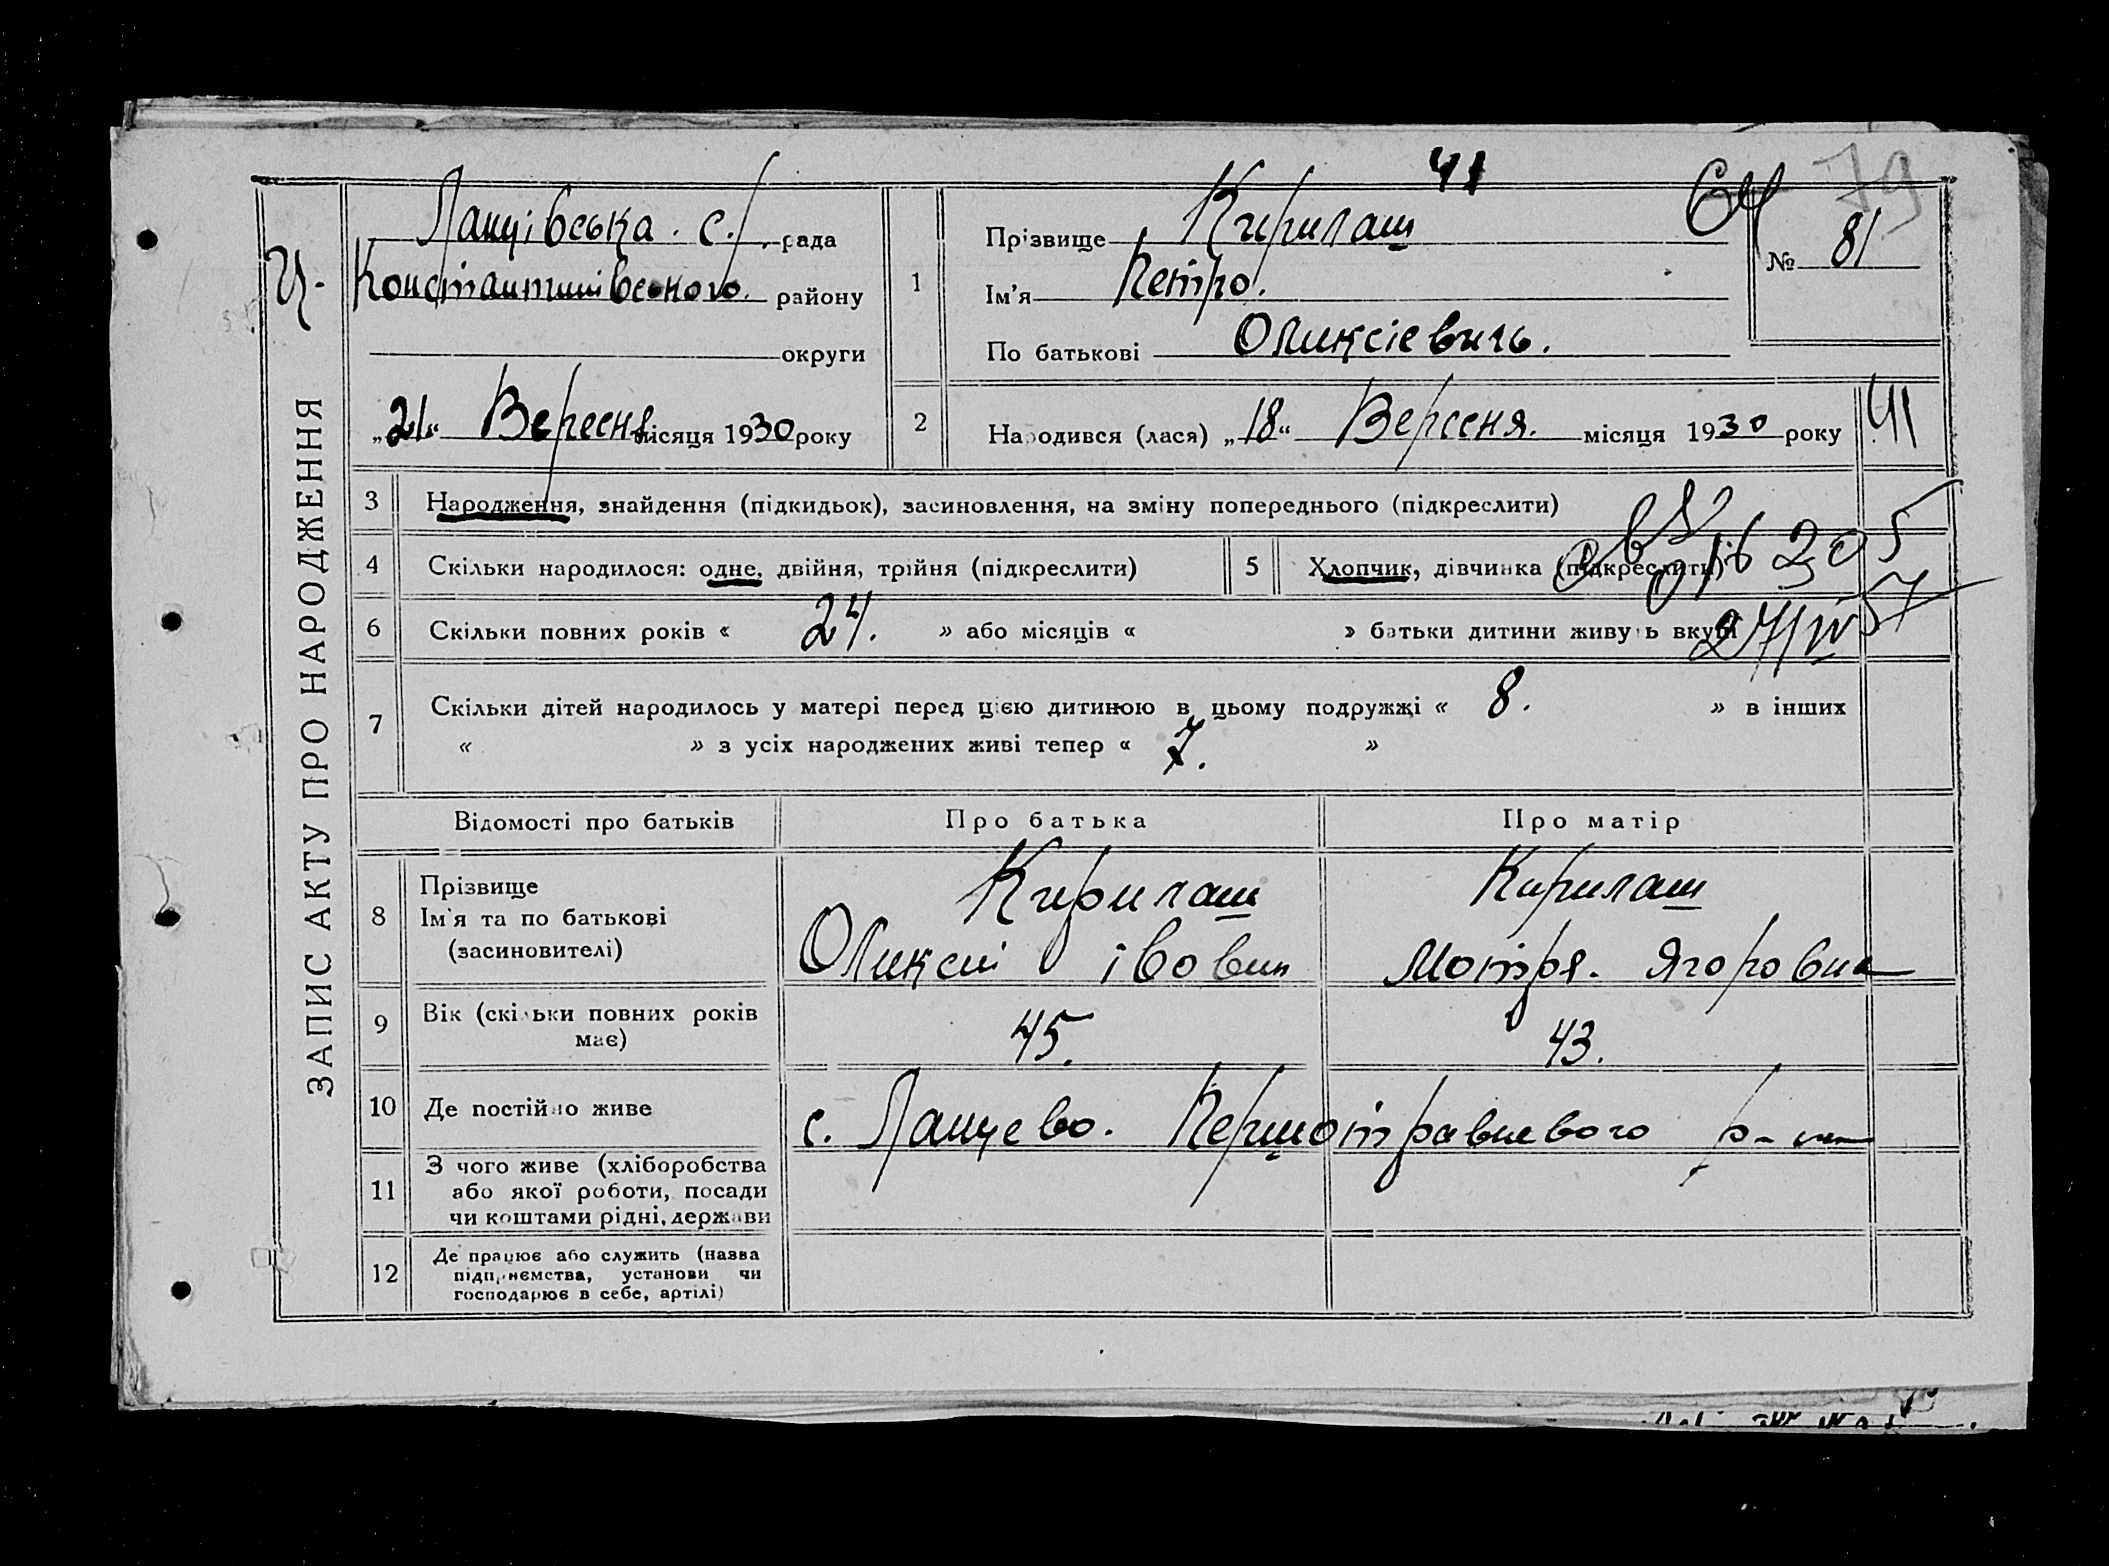 41
64 79
ЗАПИС АКТУ ПРО НАРОДЖЕННЯ
Ланцівська. с. рада
Ч- Констянтинівського району
округи
„21“ Вересня місяця 1930 року
1
Прізвище Кирилаш
Ім'я Петро.
По батькові Оликсієвичь.
№ 81
2 Народився (лася) „18“ Вересня. місяця 1930 року 41
3 Народження, знайдення (підкидьок), засиновлення, на зміну попереднього (підкреслити)
4 Скільки народилося: одне, двійня, трійня (підкреслити) 5 Хлопчик, дівчинка (підкреслити)
6 Скільки повних років « 24. » або місяців « » батьки дитини живуть вкупі
27/IV 57
7 Скільки дітей народилось у матері перед цією дитиною в цьому подружжі « 8. » в інших
« » з усіх народжених живі тепер « 7. »
Відомості про батьків Про батька Про матір
8 Прізвище Кирилаш Кирилаш
Ім'я та по батькові
(засиновителі) Оликсій івовин Мотря. Ягоровна
9 Вік (скільки повних років
має) 45. 43.
10 Де постійно живе с. Ланцево. Першотравневого р-ну
11 З чого живе (хліборобства
або якої роботи, посади
чи коштами рідні, держави
12 Де працює або служить (назва
підприємства, установи чи
господарює в себе, артілі)